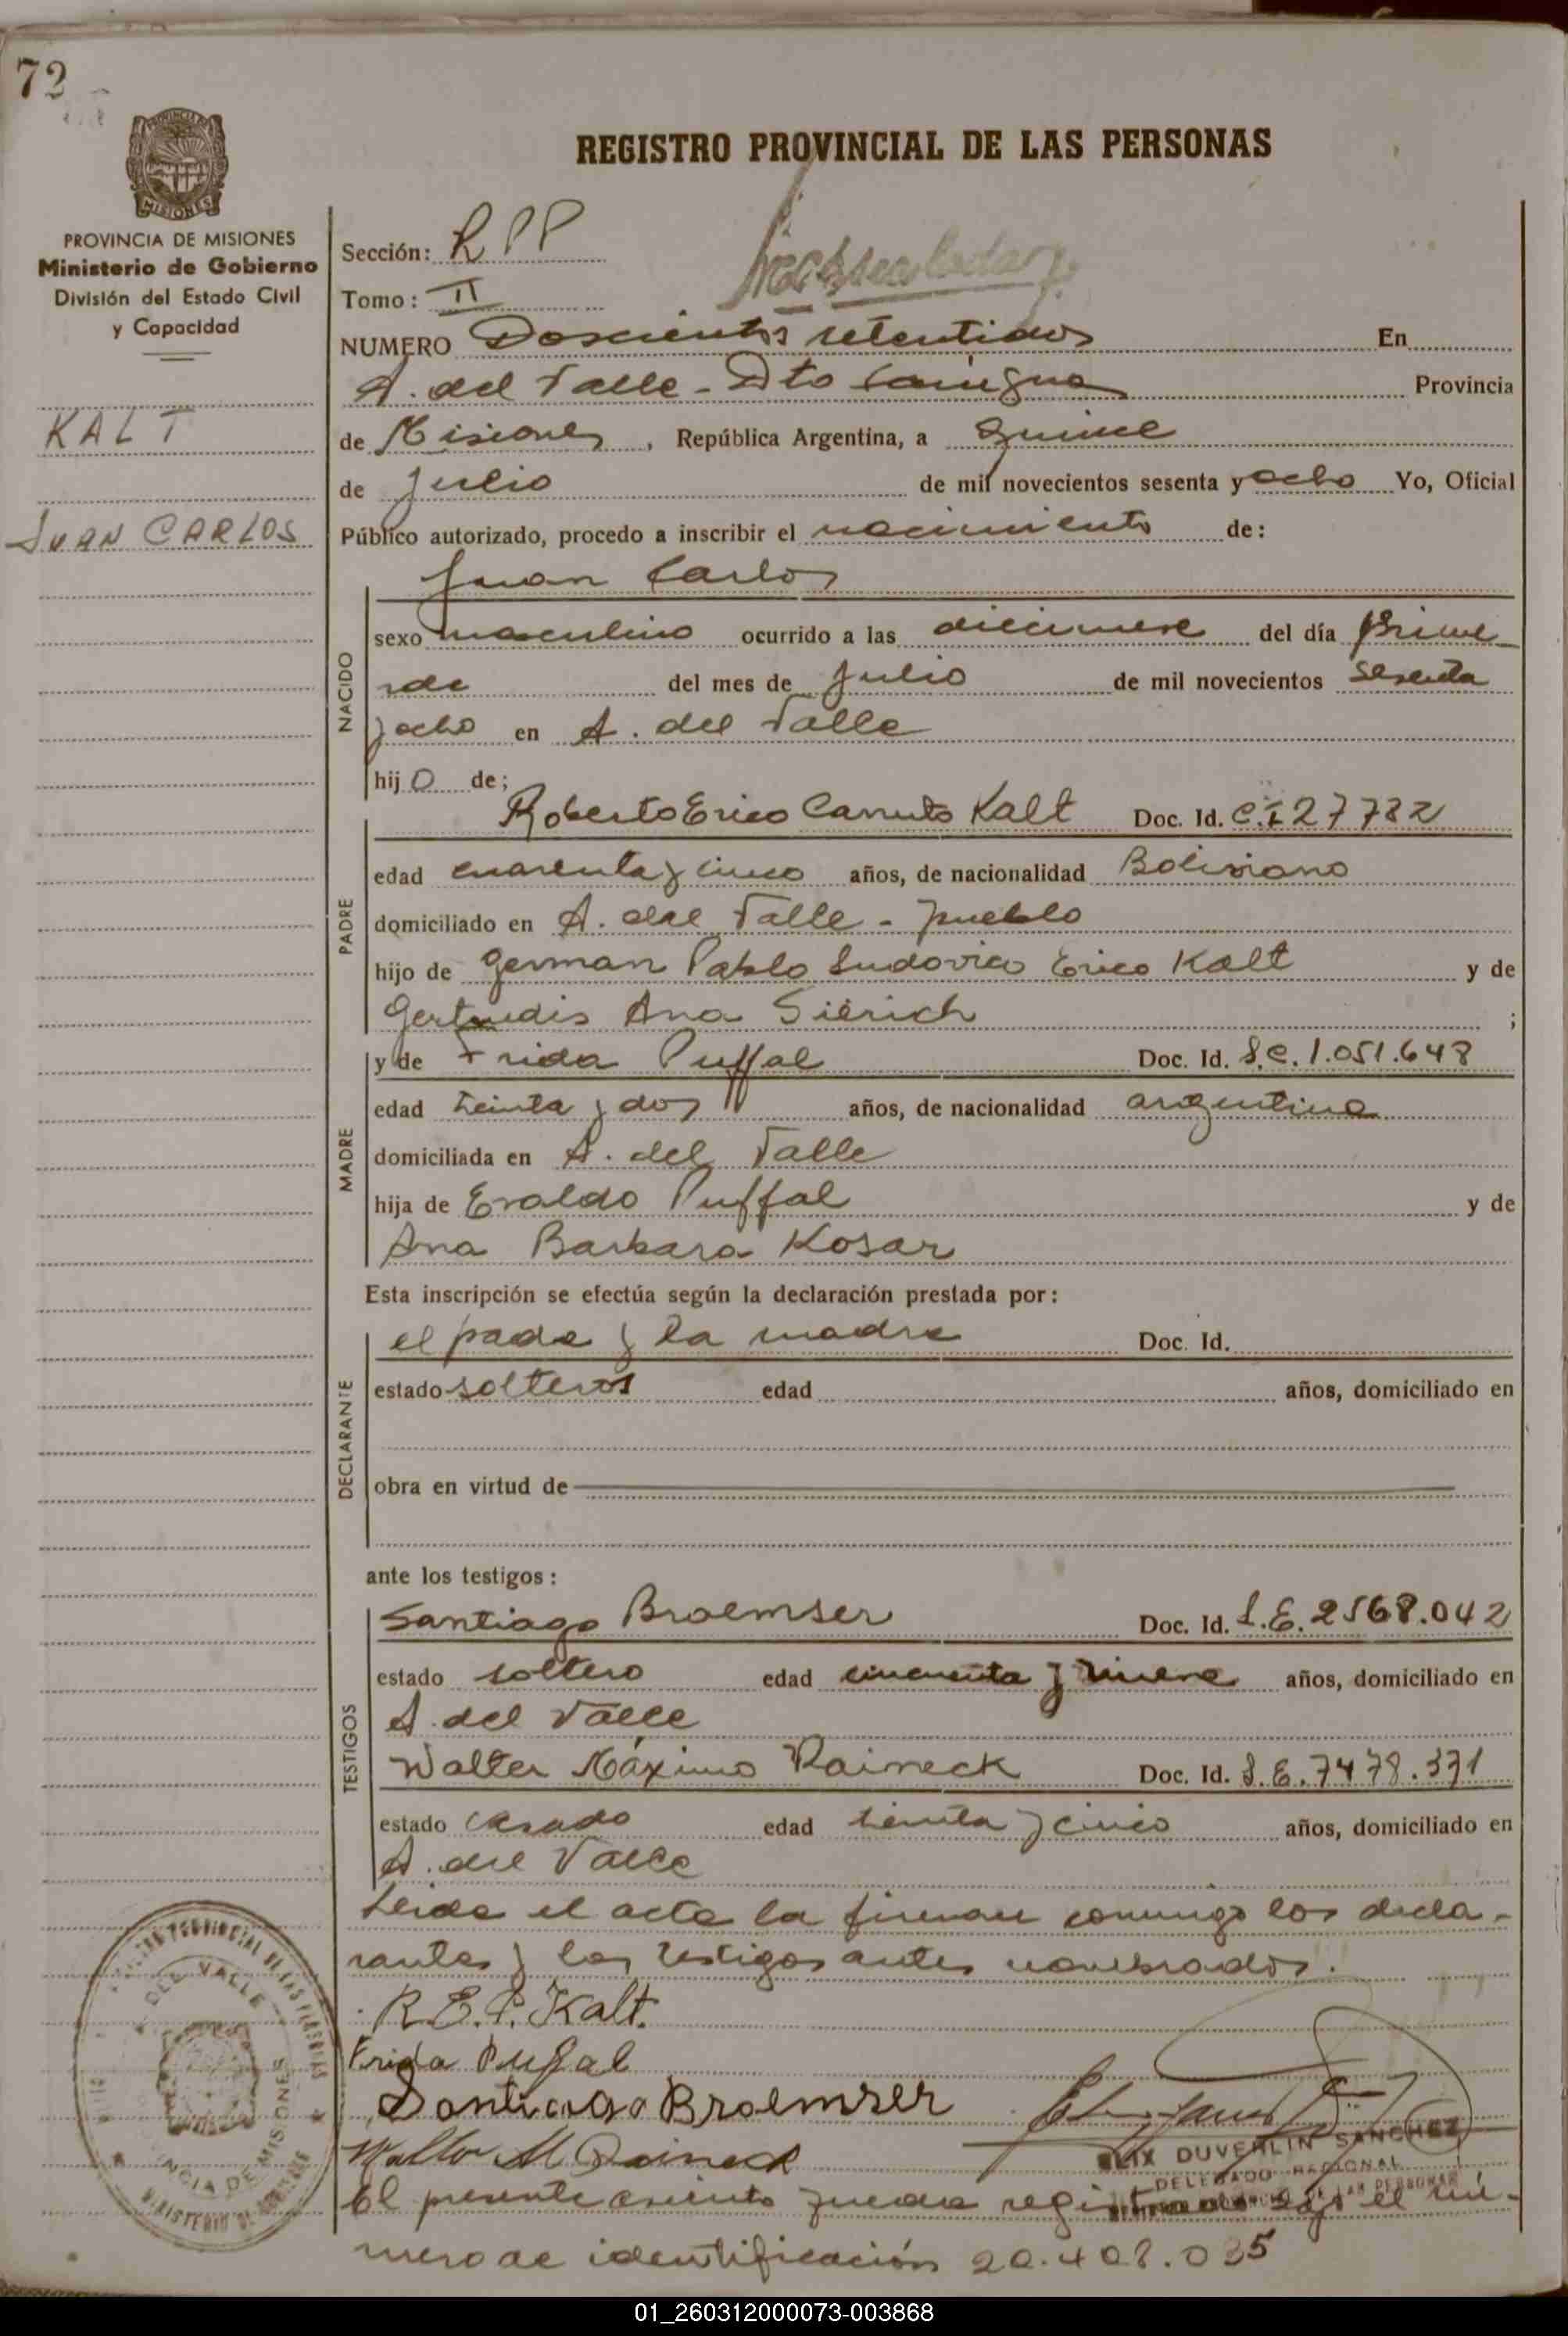 72
PROVINCIA DE MISIONES
Ministerio de Gobierno
División del Estado Civil
y Capacidad
KALT
JUAN CARLOS
REGISTRO PROVINCIAL DE LAS PERSONAS
Sección: RPP
Tomo: II
NUMERO Doscientos setentidos En
A. del Valle - Dto Cainguas Provincia
de Misiones, República Argentina, a Quince
de Julio de mil novecientos sesenta y ocho Yo, Oficial
Público autorizado, procedo a inscribir el nacimiento de:
Juan Carlos
NACIDO
sexo masculino ocurrido a las diecinueve del día Prime-
ro de del mes de Julio de mil novecientos sesenta
y ocho en A. del Valle
hijo de;
PADRE
Roberto Erico Canuto Kalt Doc. Id. C.I 27782
edad cuarenta y cinco años, de nacionalidad Boliviano
domiciliado en A. del Valle - pueblo
hijo de German Pablo Ludovico Erico Kalt y de
Gertrudis Ana Sierich ;
MADRE
y de Frida Puffal Doc. Id. L.C. 1.051.648
edad treinta y dos años, de nacionalidad argentina
domiciliada en A. del Valle
hija de Evaldo Puffal y de
Ana Barbara Kosar
Esta inscripción se efectúa según la declaración prestada por:
DECLARANTE
el padre y la madre Doc. Id.
estado solteros edad años, domiciliado en
obra en virtud de
ante los testigos:
TESTIGOS
Santiago Broemser Doc. Id. L.E. 2568.042
estado soltero edad cincuenta y nueve años, domiciliado en
A. del Valle
Walter Máximo Raineck Doc. Id. L.E. 7478.371
estado casado edad treinta y cinco años, domiciliado en
A. del Valle
Leida el acta la firman conmigo los decla-
rantes y los testigos antes nombrados.
R.E.C. Kalt.
Frida Puffal
Santiago Broemser
Walter M Raineck
DUVERLIN SANCHEZ
DELEGADO REGIONAL
DE LAS PERSONAS
El presente asiento queda registrado bajo el nú-
mero de identificación 20.408.035
REGISTRO PROVINCIAL DE LAS PERSONAS
DEL VALLE
PROVINCIA DE MISIONES
MINISTERIO DE GOBIERNO
01_260312000073-003868